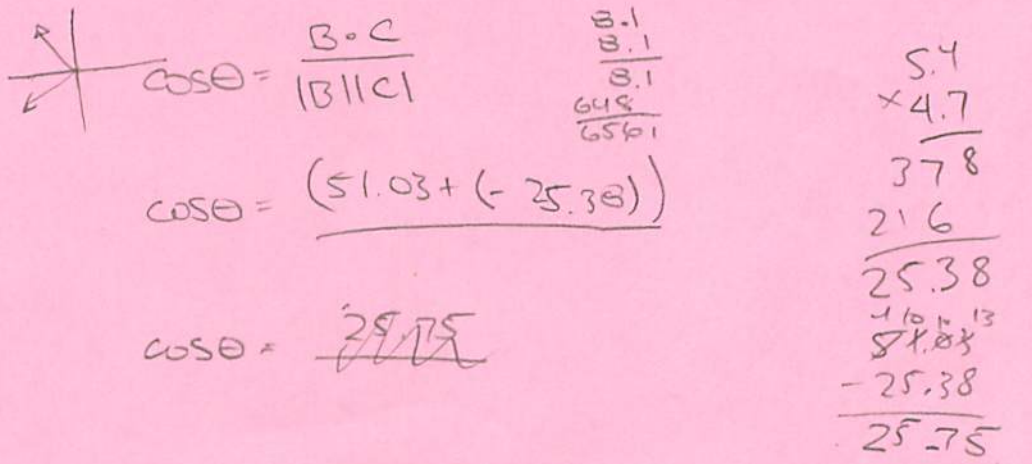 cosθ = B·C / |B||C|
8.1
8.1
8.1
648
6561
cosθ = (51.03 + (-25.38))
cosθ =
5.4
×4.7
378
216
25.38
51.03
-25.38
25.75